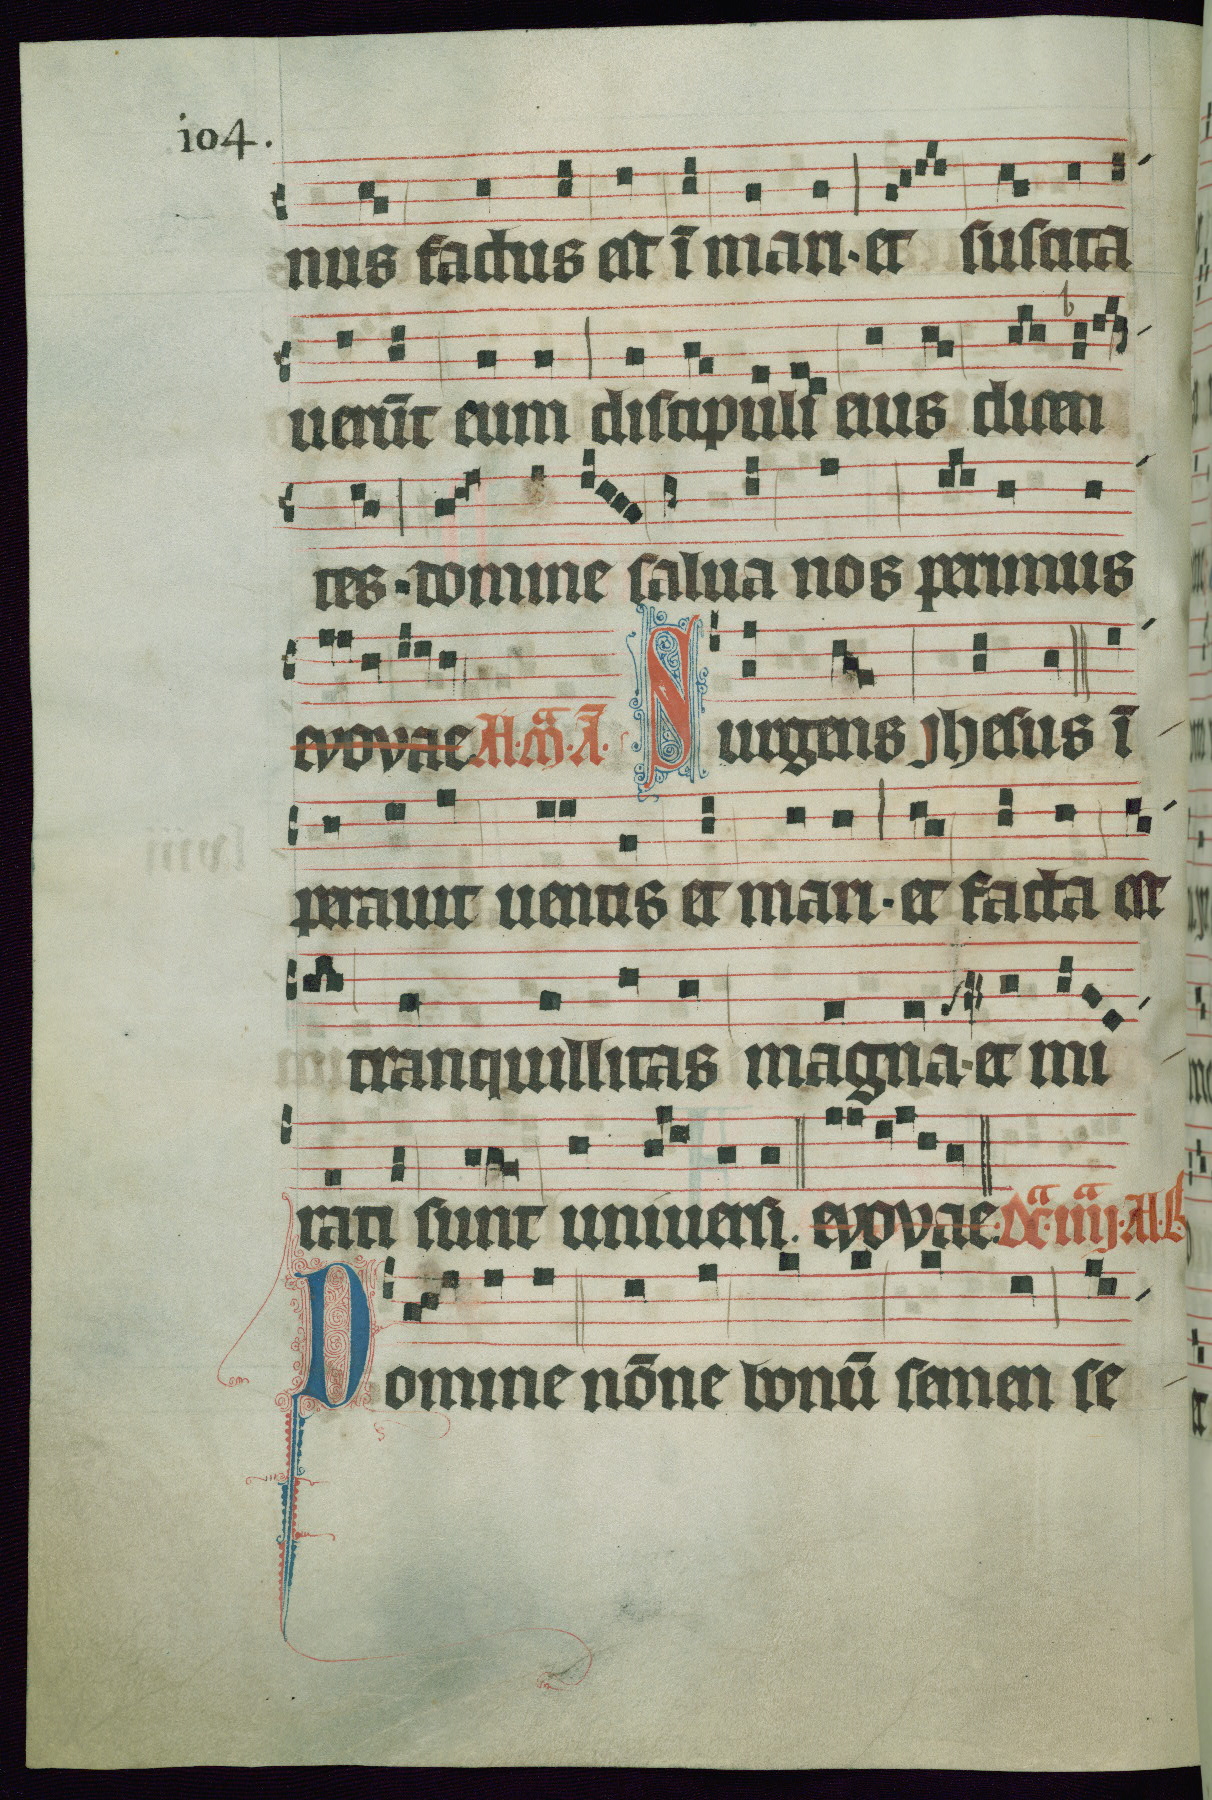 104.
nus factus est ī mari · et suscita
uerūt eum discipuli eius dicen
tes · domine salua nos perimus
evovae A · M̄ · Ā ·
Surgens jhesus ī
perauit uentis et mari · et facta est
tranquillitas magna · et mi
rati sunt uniuersi . evovae · Dc̄ᵃ · iiijᵃ · A ·
Domine nōne bonū semen se